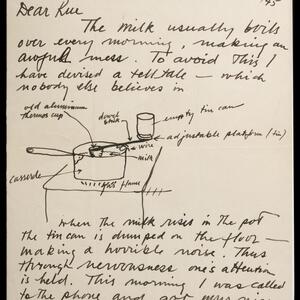 '45
Dear Rue
The milk usually boils
over every morning, making an
awful mess. To avoid this I
have devised a telltale — which
nobody else believes in
old aluminum
thermos cup
dowel
stick
empty tin can
adjustable platform (tin)
wire
milk
casserole
gas flame
when the milk rises in the pot
the tin can is dumped on the floor —
making a horrible noise. Thus
through nervousness, one's attention
is held. This morning I was called
to the phone and